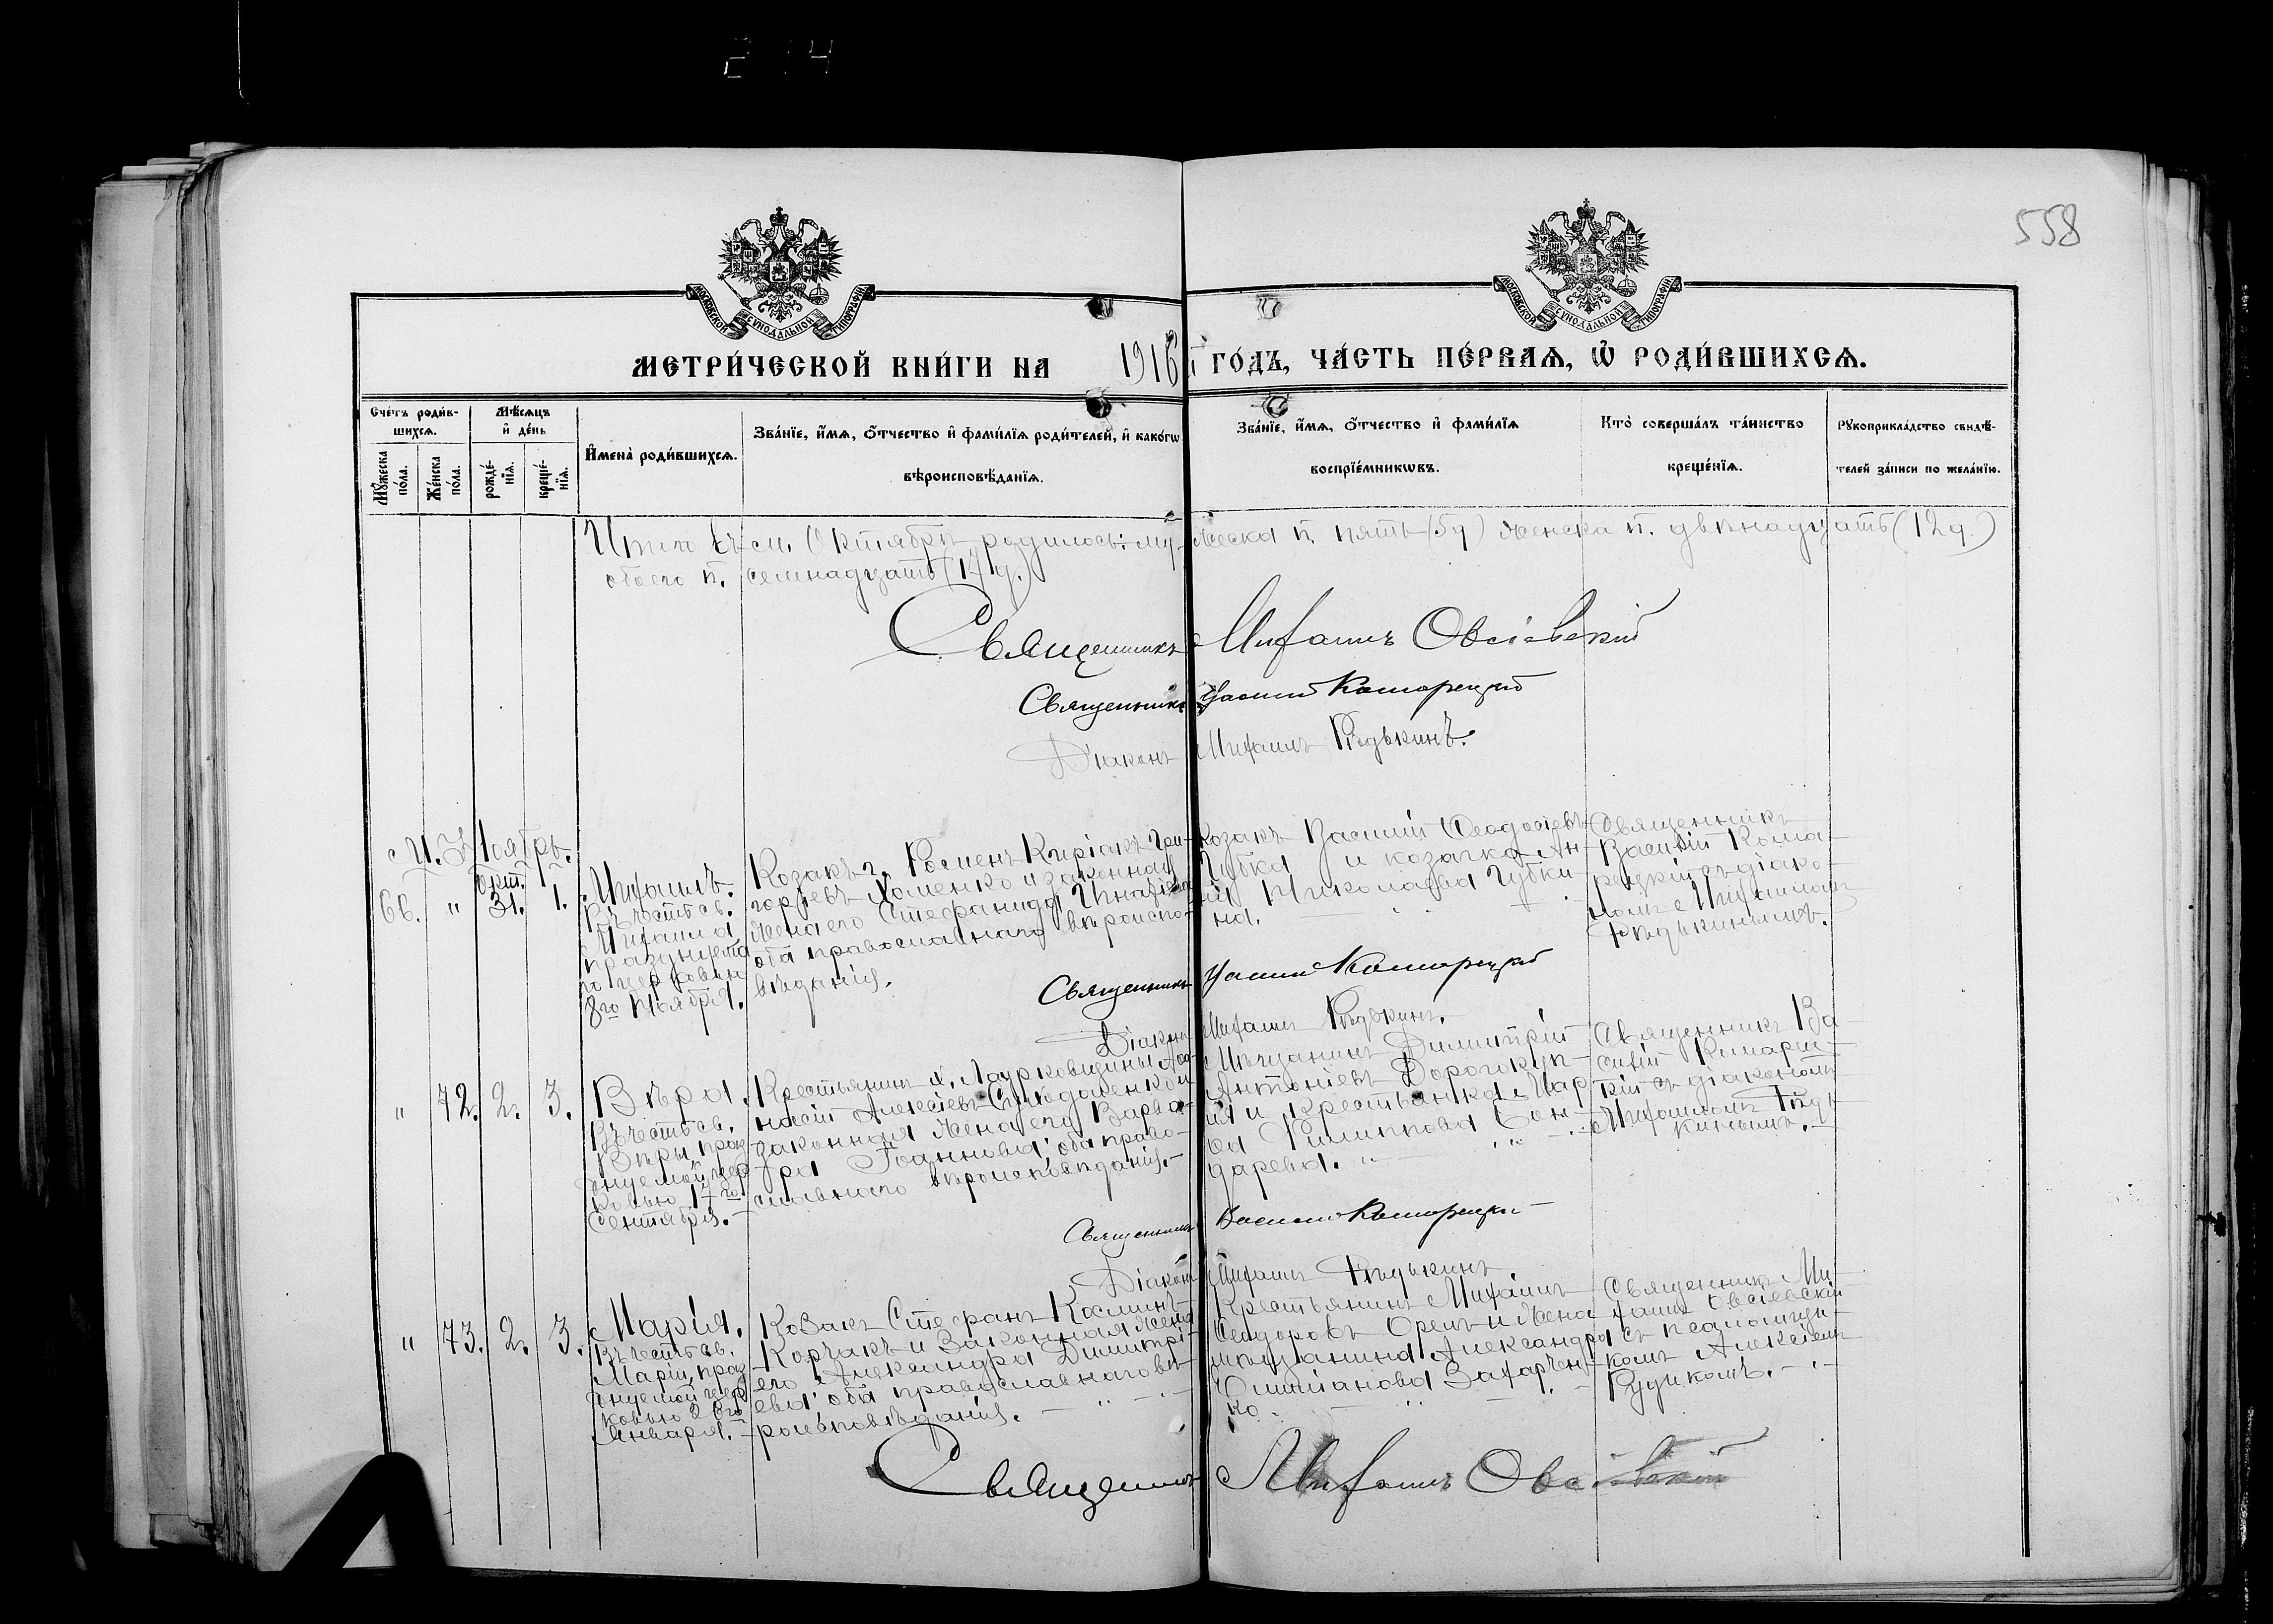 558
МОСКОВСКОЙ СѴНОДАЛЬНОЙ ТИПОГРАФІИ
МОСКОВСКОЙ СѴНОДАЛЬНОЙ ТИПОГРАФІИ
МЕТРИ́ЧЕСКОЙ КНИ́ГИ НА 1916 ГО́ДЪ, ЧА́СТЬ ПЕ́РВАѦ, Ѽ РОДИ́ВШИХСѦ.
Сче́тъ роди́в-
шихсѧ.
Мѣ́сѧцъ
и҆ де́нь
Мꙋ́жеска
по́ла.
Же́нска
по́ла.
рожде́-
нїѧ.
креще́-
нїѧ.
И҆мена̀ роди́вшихсѧ.
Зва́нїе, и҆́мѧ, ѻ҆́тчество и҆ фами́лїѧ роди́телей, и҆ како́гѡ
вѣроисповѣ́данїѧ.
Зва́нїе, и҆́мѧ, ѻ҆́тчество и҆ фами́лїѧ
воспрїе́мникѡвъ.
Кто̀ соверша́лъ та́инство
креще́нїѧ.
Рꙋкоприкла́дство свидѣ́-
телей за́писи по жела́нїю.
Итого въ м. Октябрѣ родилось: му-жеска п. пять (5ч) женска п. двѣнадцать (12ч.)
обоего п. семнадцать (17 ч.)
Священникъ Михаилъ Овсіевскій
Священникъ Василій Комарецкій
Діаконъ Михаилъ Рѣдькинъ.
М. Ноябрь.
66. " Окт. 31. 1.
Михаилъ.
Въ честь св.
Михаила
празднуема
го церковью
8го Ноября.
Козакъ г. Роменъ Киріакъ Гри-
горьевъ Хоменко и законная
жена его Стефанида Игнатіева
оба православнаго вѣроиспо-
вѣданія.
Козакъ Василій Феодосіевъ
Губка и козачка Ан-
на Николаева Губки-
на.
Священникъ
Василій Кома-
рецкій съ діако-
номъ Михаиломъ
Рѣдькинымъ.
Священникъ Василій Комарецкій
Діаконъ Михаилъ Рѣдькинъ.
" 72. 2. 3.
Вѣра.
Въ честь св.
Вѣры, праз
днуемой цер
ковью 17го
Сентября.
Крестьянинъ х. Лаурковщины Аѳа-
насій Алексіевъ Суходоленко и
законная жена его Варва-
ра Іоаннова; оба право-
славнаго вѣроисповѣданія.
Мѣщанинъ Димитрій
Антоніевъ Дорогокуп-
ля и крестьянка Мар
ѳа Филиппова Бон-
дарева.
Священникъ Ва-
силій Комарец-
кій съ діакономъ
Михаиломъ Рѣдь-
кинымъ.
Священникъ Василій Комарецкій
Діаконъ Михаилъ Рѣдькинъ.
" 73. 2. 3.
Марія.
Въ честь св.
Маріи, праз
днуемой цер
ковью 26го
Января.
Козакъ Стефанъ Косминъ
Корчакъ и законная жена
его Александра Димитрі-
ева; оба православнаго вѣ-
роисповѣданія.
Крестьянинъ Михаилъ
Сидоровъ Орелъ и жена
мѣщанина Александра
Захарчен-
ко.
Священникъ Ми-
хаилъ Овсіевскій
съ псаломщи-
комъ Алексіемъ
Рудикомъ.
Священникъ Михаилъ Овсіевскій